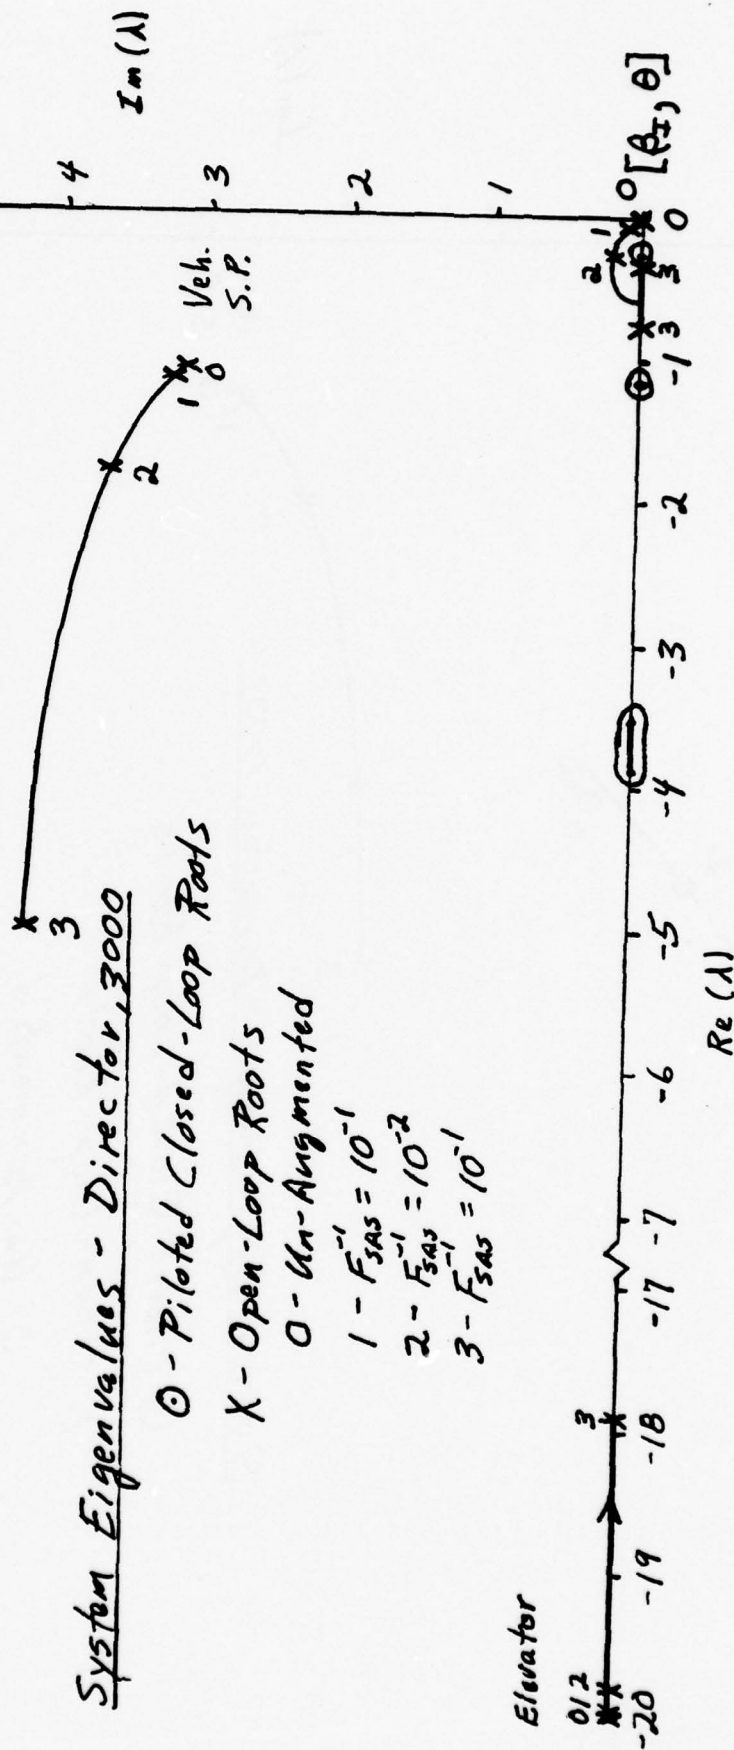 System Eigenvalues - Director, 3000
⊙ - Piloted Closed-Loop Roots
X - Open-Loop Roots
0 - Un-Augmented
1 - F_SAS^-1 = 10^-1
2 - F_SAS^-1 = 10^-2
3 - F_SAS^-1 = 10^-1
Im(λ)
4
3
2
1
0 [β_I, θ]
Veh.
S.P.
0
1
2
3
Elevator
0 1 2
3
3
3
2
1
-20
-19
-18
-17
-7
-6
-5
-4
-3
-2
-1
0
Re(λ)